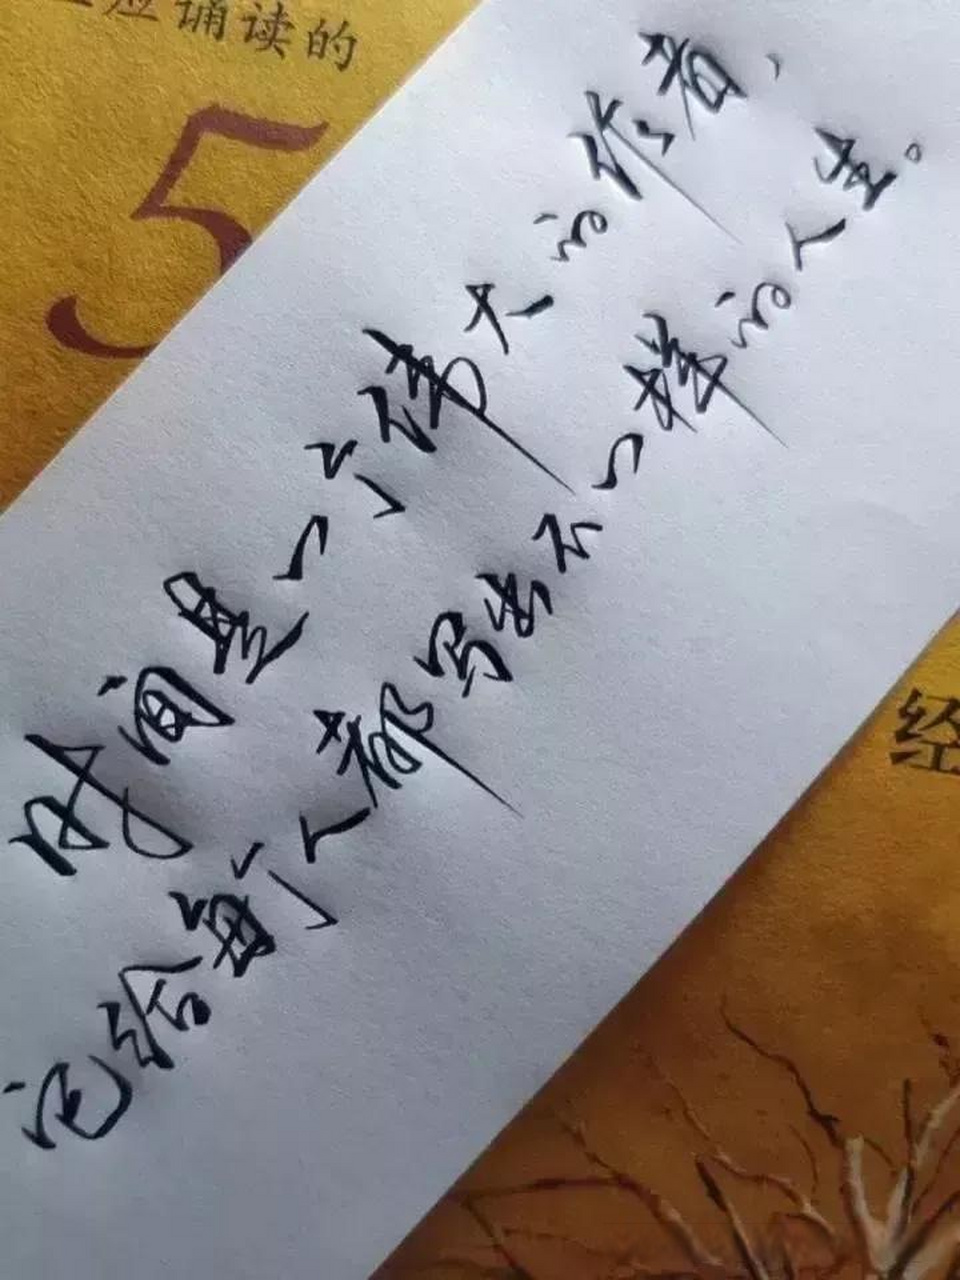 应诵读的
5
时间是一个伟大的作者，
它给每个人都写出不一样的人生。
经